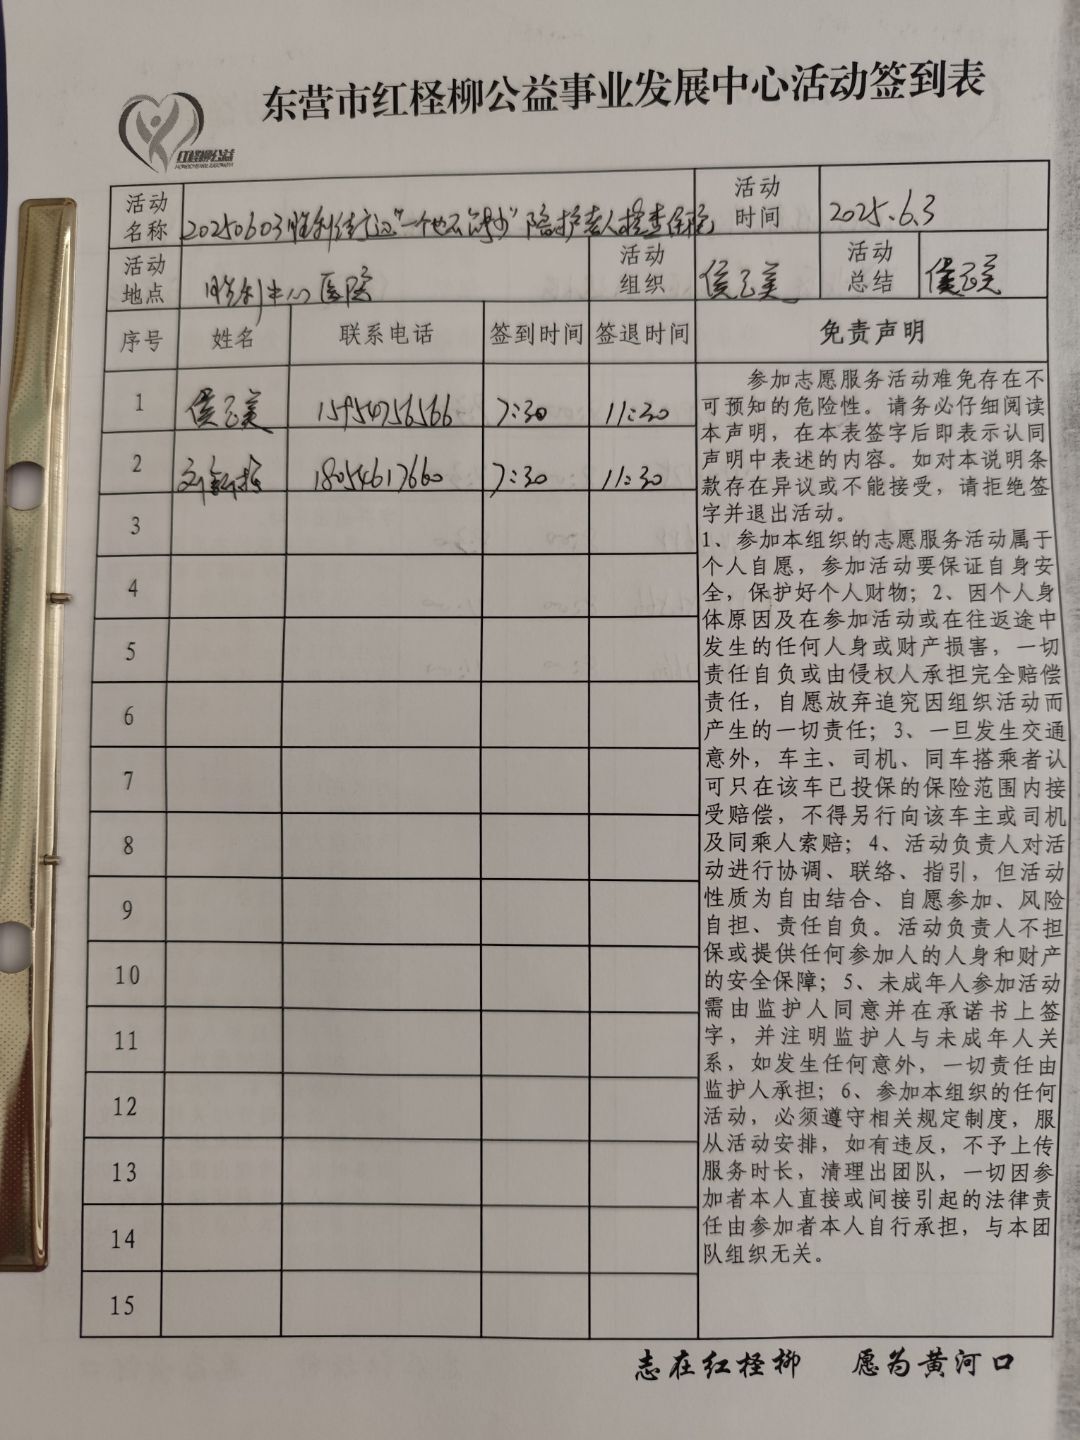 东营市红柽柳公益事业发展中心活动签到表
红柽柳公益
活动名称 20250603胜利街道"一个也不能少"陪护老人检查住院 活动时间 2025.6.3
活动地点 胜利中心医院 活动组织 侯云美 活动总结 侯云美
序号 姓名 联系电话 签到时间 签退时间 免责声明
1 侯云美 15954756566 7:30 11:30
2 刘 18054617660 7:30 11:30
3
4
5
6
7
8
9
10
11
12
13
14
15
参加志愿服务活动难免存在不
可预知的危险性。请务必仔细阅读
本声明，在本表签字后即表示认同
声明中表述的内容。如对本说明条
款存在异议或不能接受，请拒绝签
字并退出活动。
1、参加本组织的志愿服务活动属于
个人自愿，参加活动要保证自身安
全，保护好个人财物；2、因个人身
体原因及在参加活动或在往返途中
发生的任何人身或财产损害，一切
责任自负或由侵权人承担完全赔偿
责任，自愿放弃追究因组织活动而
产生的一切责任；3、一旦发生交通
意外，车主、司机、同车搭乘者认
可只在该车已投保的保险范围内接
受赔偿，不得另行向该车主或司机
及同乘人索赔；4、活动负责人对活
动进行协调、联络、指引，但活动
性质为自由结合、自愿参加、风险
自担、责任自负。活动负责人不担
保或提供任何参加人的人身和财产
的安全保障；5、未成年人参加活动
需由监护人同意并在承诺书上签
字，并注明监护人与未成年人关
系，如发生任何意外，一切责任由
监护人承担；6、参加本组织的任何
活动，必须遵守相关规定制度，服
从活动安排，如有违反，不予上传
服务时长，清理出团队，一切因参
加者本人直接或间接引起的法律责
任由参加者本人自行承担，与本团
队组织无关。
志在红柽柳 愿为黄河口